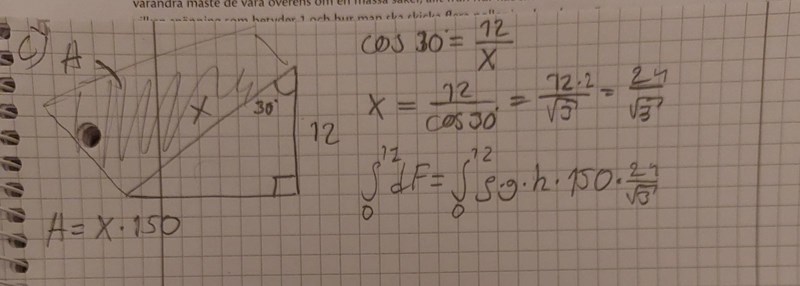 varandra måste de vara överens om en massa saker,
c) A
x
30°
12
A = x · 150
cos 30° = 12/x
x = 12/cos 30 = 12·2/√3 = 24/√3
∫₀¹² dF = ∫₀¹² ρ·g·h·150·24/√3